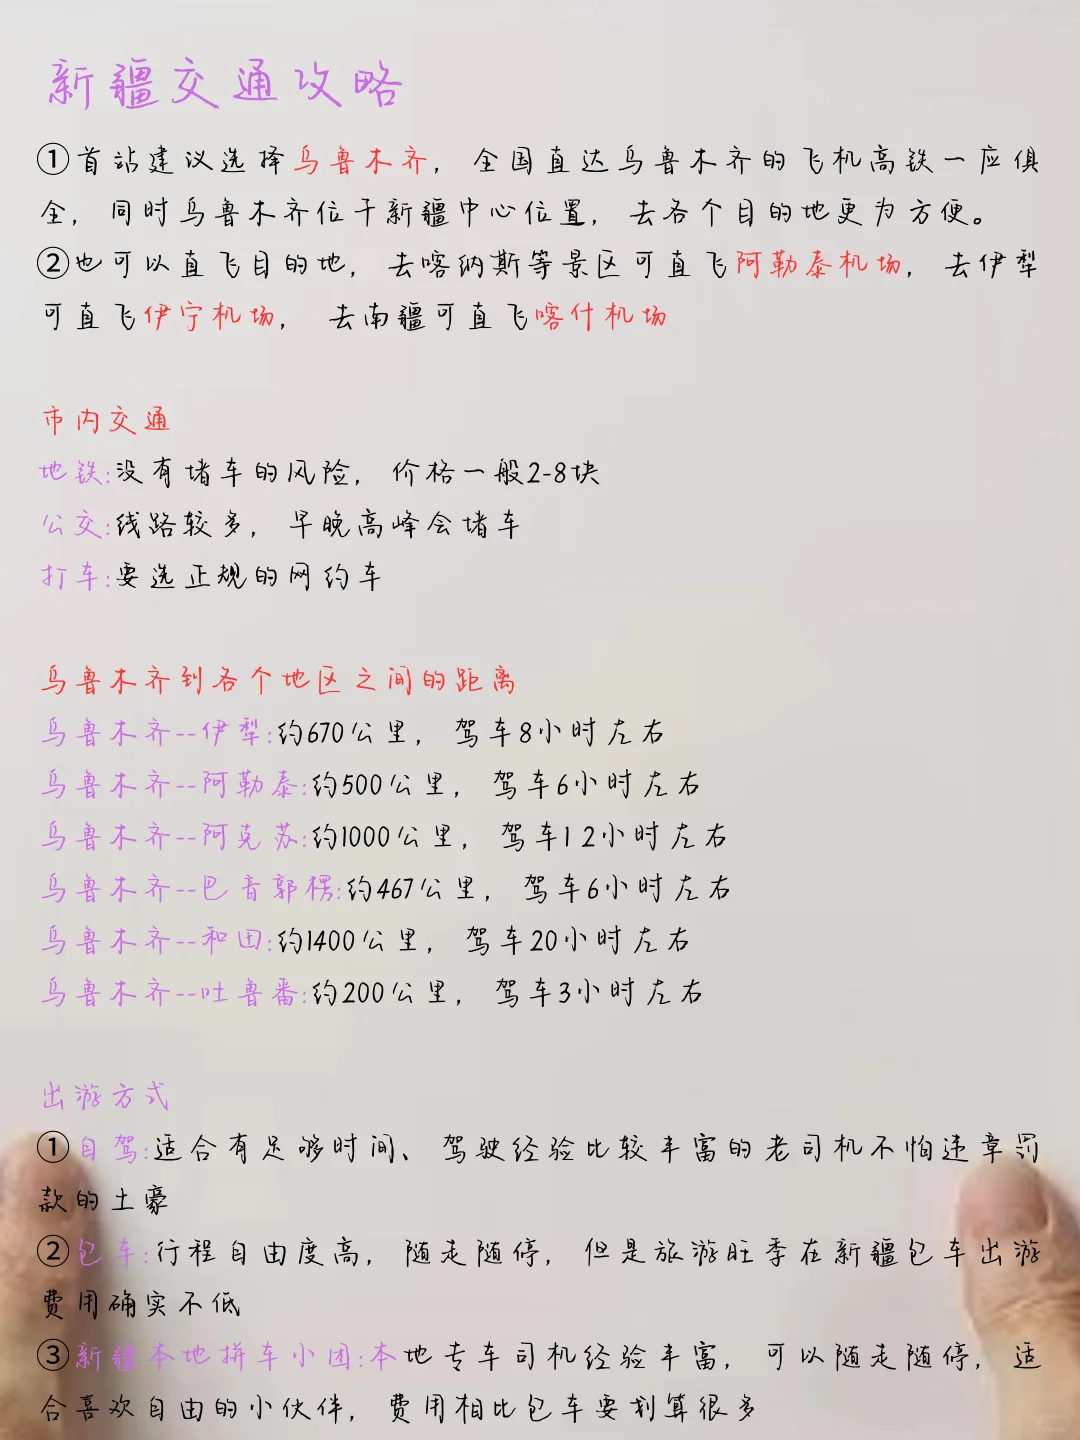 新疆交通攻略
①首站建议选择乌鲁木齐，全国直达乌鲁木齐的飞机高铁一应俱
全，同时乌鲁木齐位于新疆中心位置，去各个目的地更为方便。
②也可以直飞目的地，去喀纳斯等景区可直飞阿勒泰机场，去伊犁
可直飞伊宁机场，去南疆可直飞喀什机场
市内交通
地铁:没有堵车的风险，价格一般2-8块
公交:线路较多，早晚高峰会堵车
打车:要选正规的网约车
乌鲁木齐到各个地区之间的距离
乌鲁木齐--伊犁:约670公里，驾车8小时左右
乌鲁木齐--阿勒泰:约500公里，驾车6小时左右
乌鲁木齐--阿克苏:约1000公里，驾车12小时左右
乌鲁木齐--巴音郭楞:约467公里，驾车6小时左右
乌鲁木齐--和田:约1400公里，驾车20小时左右
乌鲁木齐--吐鲁番:约200公里，驾车3小时左右
出游方式
①自驾:适合有足够时间、驾驶经验比较丰富的老司机不怕违章罚
款的土豪
②包车:行程自由度高，随走随停，但是旅游旺季在新疆包车出游
费用确实不低
③新疆本地拼车小团:本地专车司机经验丰富，可以随走随停，适
合喜欢自由的小伙伴，费用相比包车要划算很多